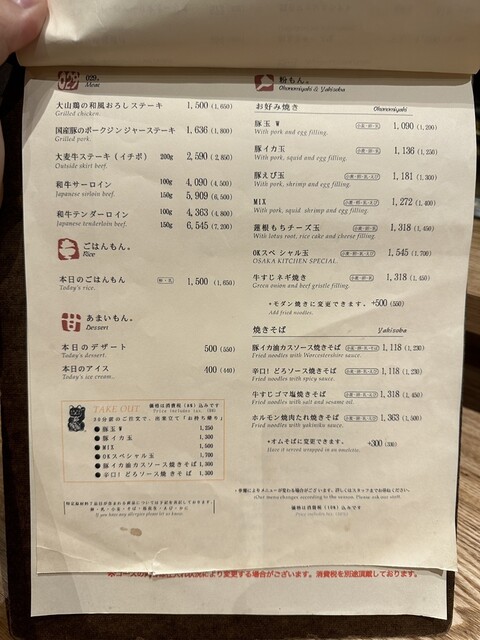 029
029。
Meat
大山鶏の和風おろしステーキ 1,500 (1,650)
Grilled chicken.
国産豚のポークジンジャーステーキ 1,636 (1,800)
Grilled pork.
大麦牛ステーキ（イチボ） 200g 2,590 (2,850)
Outside skirt beef.
和牛サーロイン 100g 4,090 (4,500)
Japanese sirloin beef. 150g 5,909 (6,500)
和牛テンダーロイン 100g 4,363 (4,800)
Japanese tenderloin beef. 150g 6,545 (7,200)
ごはんもん。
Rice
本日のごはんもん 1,500 (1,650)
Today's rice.
あまいもん。
Dessert
本日のデザート 500 (550)
Today's dessert.
本日のアイス 400 (440)
Today's ice cream.
TAKE OUT 価格は消費税(8%)込みです
Price includes tax. (8%)
●豚玉W 1,250
●豚イカ玉 1,300
●MIX 1,500
●OKスペシャル玉 1,700
●豚イカ油カスソース焼きそば 1,300
●辛口！どろソース焼きそば 1,300
If you have any allergies please let us know.
粉もん。
Okonomiyaki & Yakisoba
お好み焼き Okonomiyaki
豚玉 W 1,090 (1,200)
With pork and egg filling.
豚イカ玉 1,136 (1,250)
With pork, squid and egg filling.
豚えび玉 1,181 (1,300)
With pork, shrimp and egg filling.
MIX 1,272 (1,400)
With pork, squid shrimp and egg filling.
蓮根もちチーズ玉 1,318 (1,450)
With lotus root, rice cake and cheese filling.
OKスペシャル玉 1,545 (1,700)
OSAKA KITCHEN SPECIAL.
牛すじネギ焼き 1,318 (1,450)
Green onion and beef gristle filling.
*モダン焼きに変更できます。 +500 (550)
Add fried noodles.
焼きそば Yakisoba
豚イカ油カスソース焼きそば 1,118 (1,230)
Fried noodles with Worcestershire sauce.
辛口！どろソース焼きそば 1,118 (1,230)
Fried noodles with spicy sauce.
牛すじゴマ塩焼きそば 1,318 (1,450)
Fried noodles with salt and sesame oil.
ホルモン焼肉たれ焼きそば 1,363 (1,500)
Fried noodles with yakiniku sauce.
*オムそばに変更できます。 +300 (330)
Have it served wrapped in an omelette.
*季節によりメニューが変わる場合がございます。詳しくはスタッフまでお尋ねください。
*Our menu changes according to the season. Please ask our staff.
価格は消費税(10%)込みです
Price includes tax. (10%)
入れ状況により変更する場合がございます。消費税を別途頂戴しております。